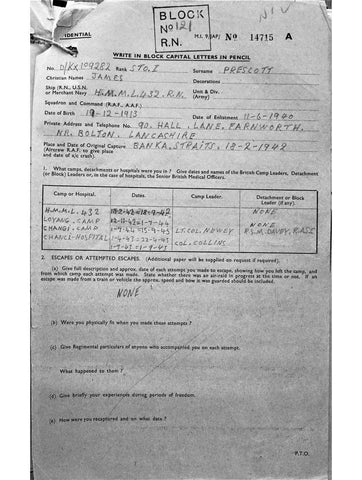 BLOCK
No 121
R.N.
IDENTIAL
M.I. 9/JAP/ No 14715 A
WRITE IN BLOCK CAPITAL LETTERS IN PENCIL
No. D/KX109282 Rank STO. I Surname PRESCOTT
Christian Names JAMES Decorations
Ship (R.N., U.S.N. or Merchant Navy H.M.M.L. 432. R.N. Unit & Div. (Army)
Squadron and Command (R.A.F., A.A.F.)
Date of Birth 19-12-1913 Date of Enlistment 11-6-1940
Private Address and Telephone No. 90. HALL LANE. FARNWORTH.
NR. BOLTON. LANCASHIRE
Place and Date of Original Capture BANKA. STRAITS. 18-2-1942
(Aircrew R.A.F. to give place and date of a/c crash).
1. What camps, detachments or hospitals were you in? Give dates and names of the British Camp Leaders, Detachment
(or Block) Leaders or, in the case of hospitals, the Senior British Medical Officers.
Camp or Hospital. Dates. Camp Leader. Detachment or Block Leader (if any).
H.M.M.L. 432 NONE
LOYANG. CAMP NONE
CHANGI. CAMP LT. COL. NEWEY R.S.M. DAVEY.
CHANGI-HOSPITAL COL. COLLINS
2. ESCAPES OR ATTEMPTED ESCAPES. (Additional paper will be supplied on request if required).
(a) Give full description and approx. date of each attempt you made to escape, showing how you left the camp, and
from which camp each attempt was made. State whether there was an air-raid in progress at that time or not. If an
escape was made from train or vehicle the approx. speed and how it was guarded should be included.
NONE
(b) Were you physically fit when you made these attempts?
(c) Give Regimental particulars of anyone who accompanied you on each attempt.
What happened to them?
(d) Give briefly your experiences during periods of freedom.
(e) How were you recaptured and on what date?
P.T.O.